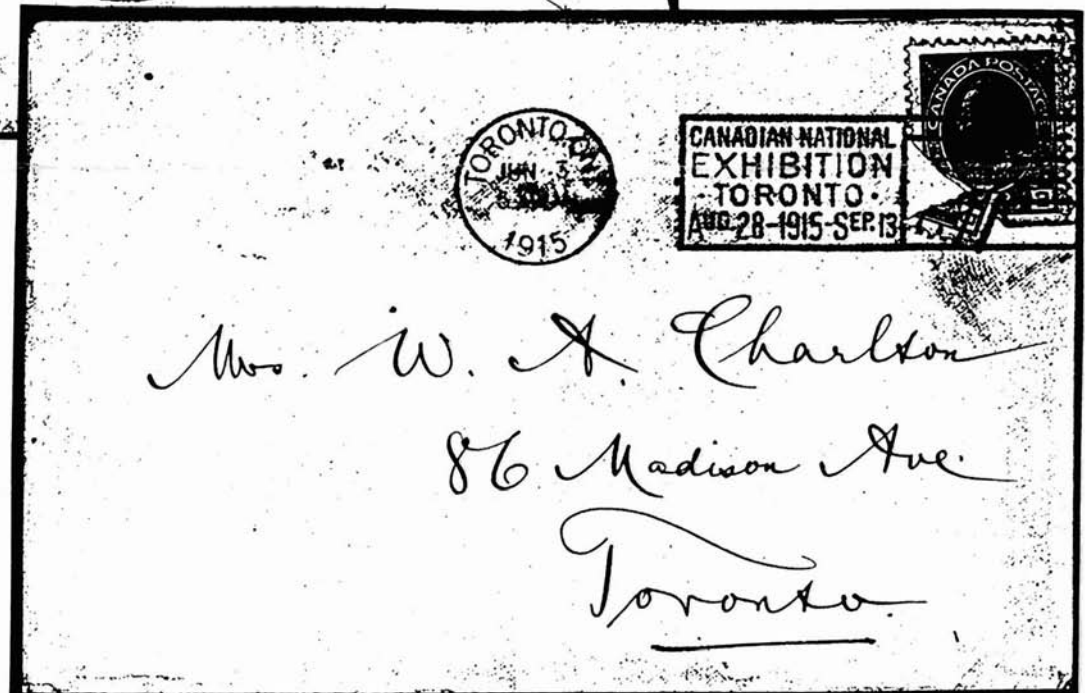 TORONTO, ONT
JUN 3
1915
CANADIAN NATIONAL
EXHIBITION
· TORONTO ·
AUG. 28-1915-SEP. 13
CANADA POSTAGE
Mrs. W. A. Charlton
86 Madison Ave.
Toronto.